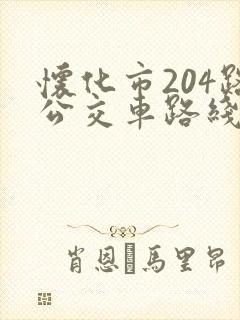 懷化市204路
公交車路綫
肖恩·馬里昂